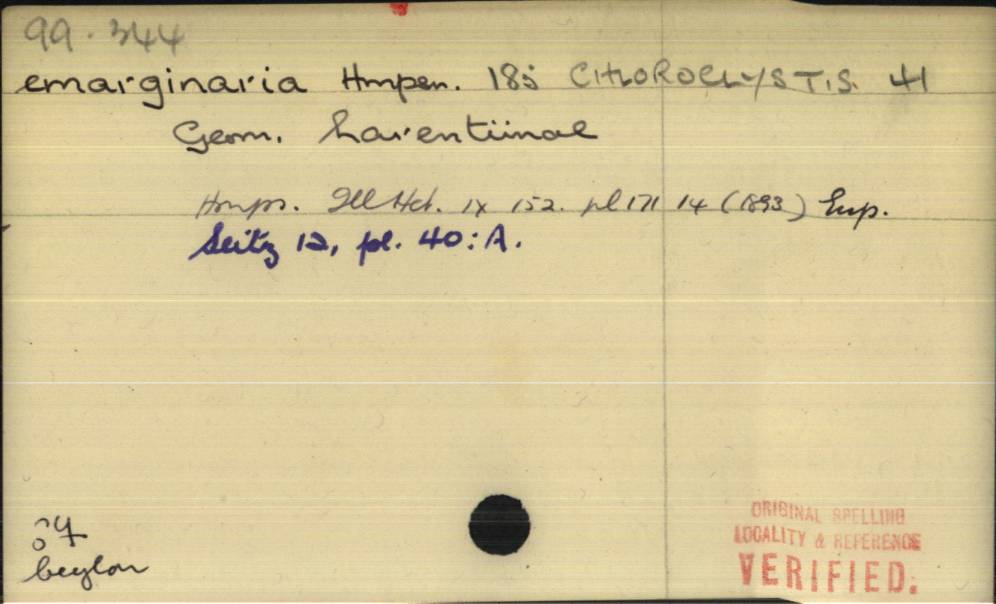 99.344
emarginaria Hmpsn. 185 CHLOROCLYSTIS. 41
Geom. Larentiinae
Hmps. Ill Het. IX 152. pl 171 14 (1893) Eup.
Seitz 12, pl. 40:A.
♂♀
Ceylon
ORIGINAL SPELLING
LOCALITY & REFERENCE
VERIFIED.